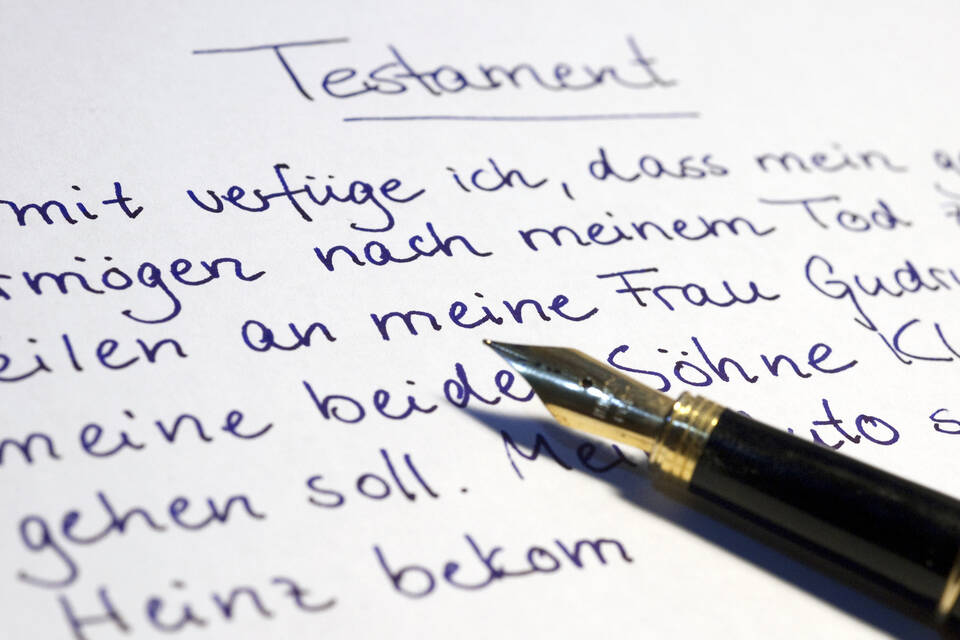 Testament
mit verfüge ich, dass mein
rmögen nach meinem Tod
eilen an meine Frau Gudru
meine beiden Söhne Kl
gehen soll. Mein Auto s
Heinz bekom